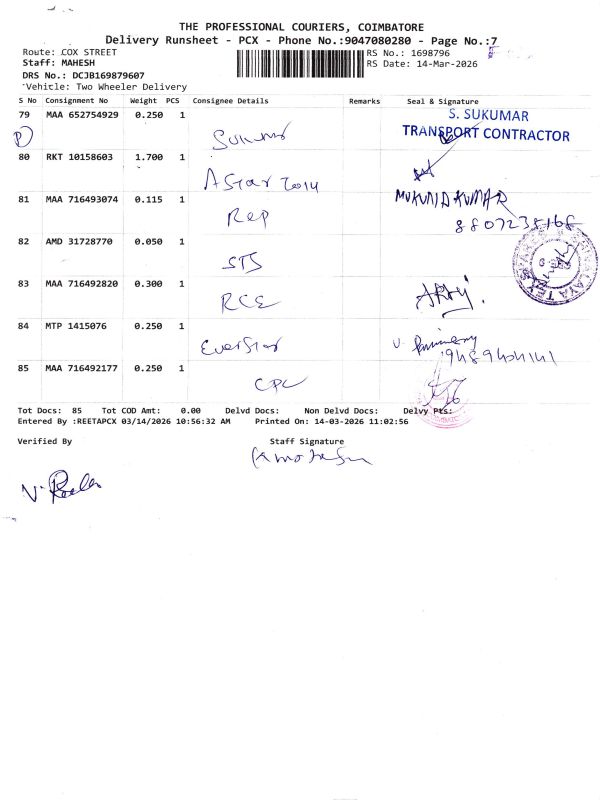 THE PROFESSIONAL COURIERS, COIMBATORE
Delivery Runsheet - PCX - Phone No.:9047080280 - Page No.:7
Route: COX STREET
RS No.: 1698796
Staff: MAHESH
RS Date: 14-Mar-2026
DRS No.: DCJB169879607
Vehicle: Two Wheeler Delivery
S No Consignment No Weight PCS Consignee Details Remarks Seal & Signature
79 MAA 652754929 0.250 1 Sukumar
S. SUKUMAR
TRANSPORT CONTRACTOR
P
80 RKT 10158603 1.700 1
A Star
81 MAA 716493074 0.115 1 Rep
MUKUND KUMAR
82 AMD 31728770 0.050 1
STS
83 MAA 716492820 0.300 1
RCE
84 MTP 1415076 0.250 1
EverStar
85 MAA 716492177 0.250 1
CPC
Tot Docs: 85 Tot COD Amt: 0.00 Delvd Docs: Non Delvd Docs: Delvy Pts:
Entered By :REETAPCX 03/14/2026 10:56:32 AM Printed On: 14-03-2026 11:02:56
Verified By Staff Signature